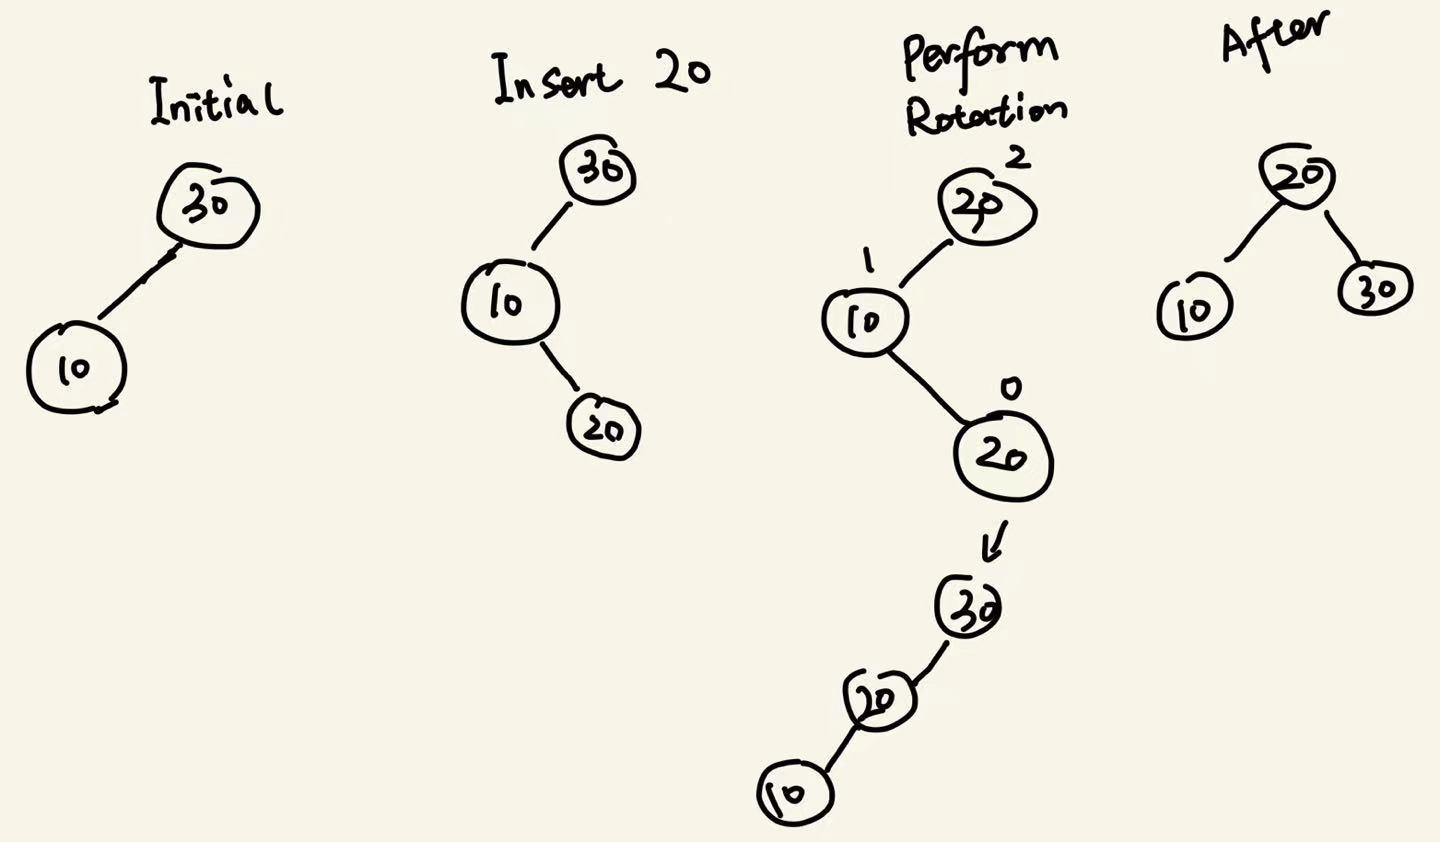 Initial
30
10
Insert 20
30
10
20
Perform
Rotation
2
20
1
10
0
20
30
20
10
After
20
10
30